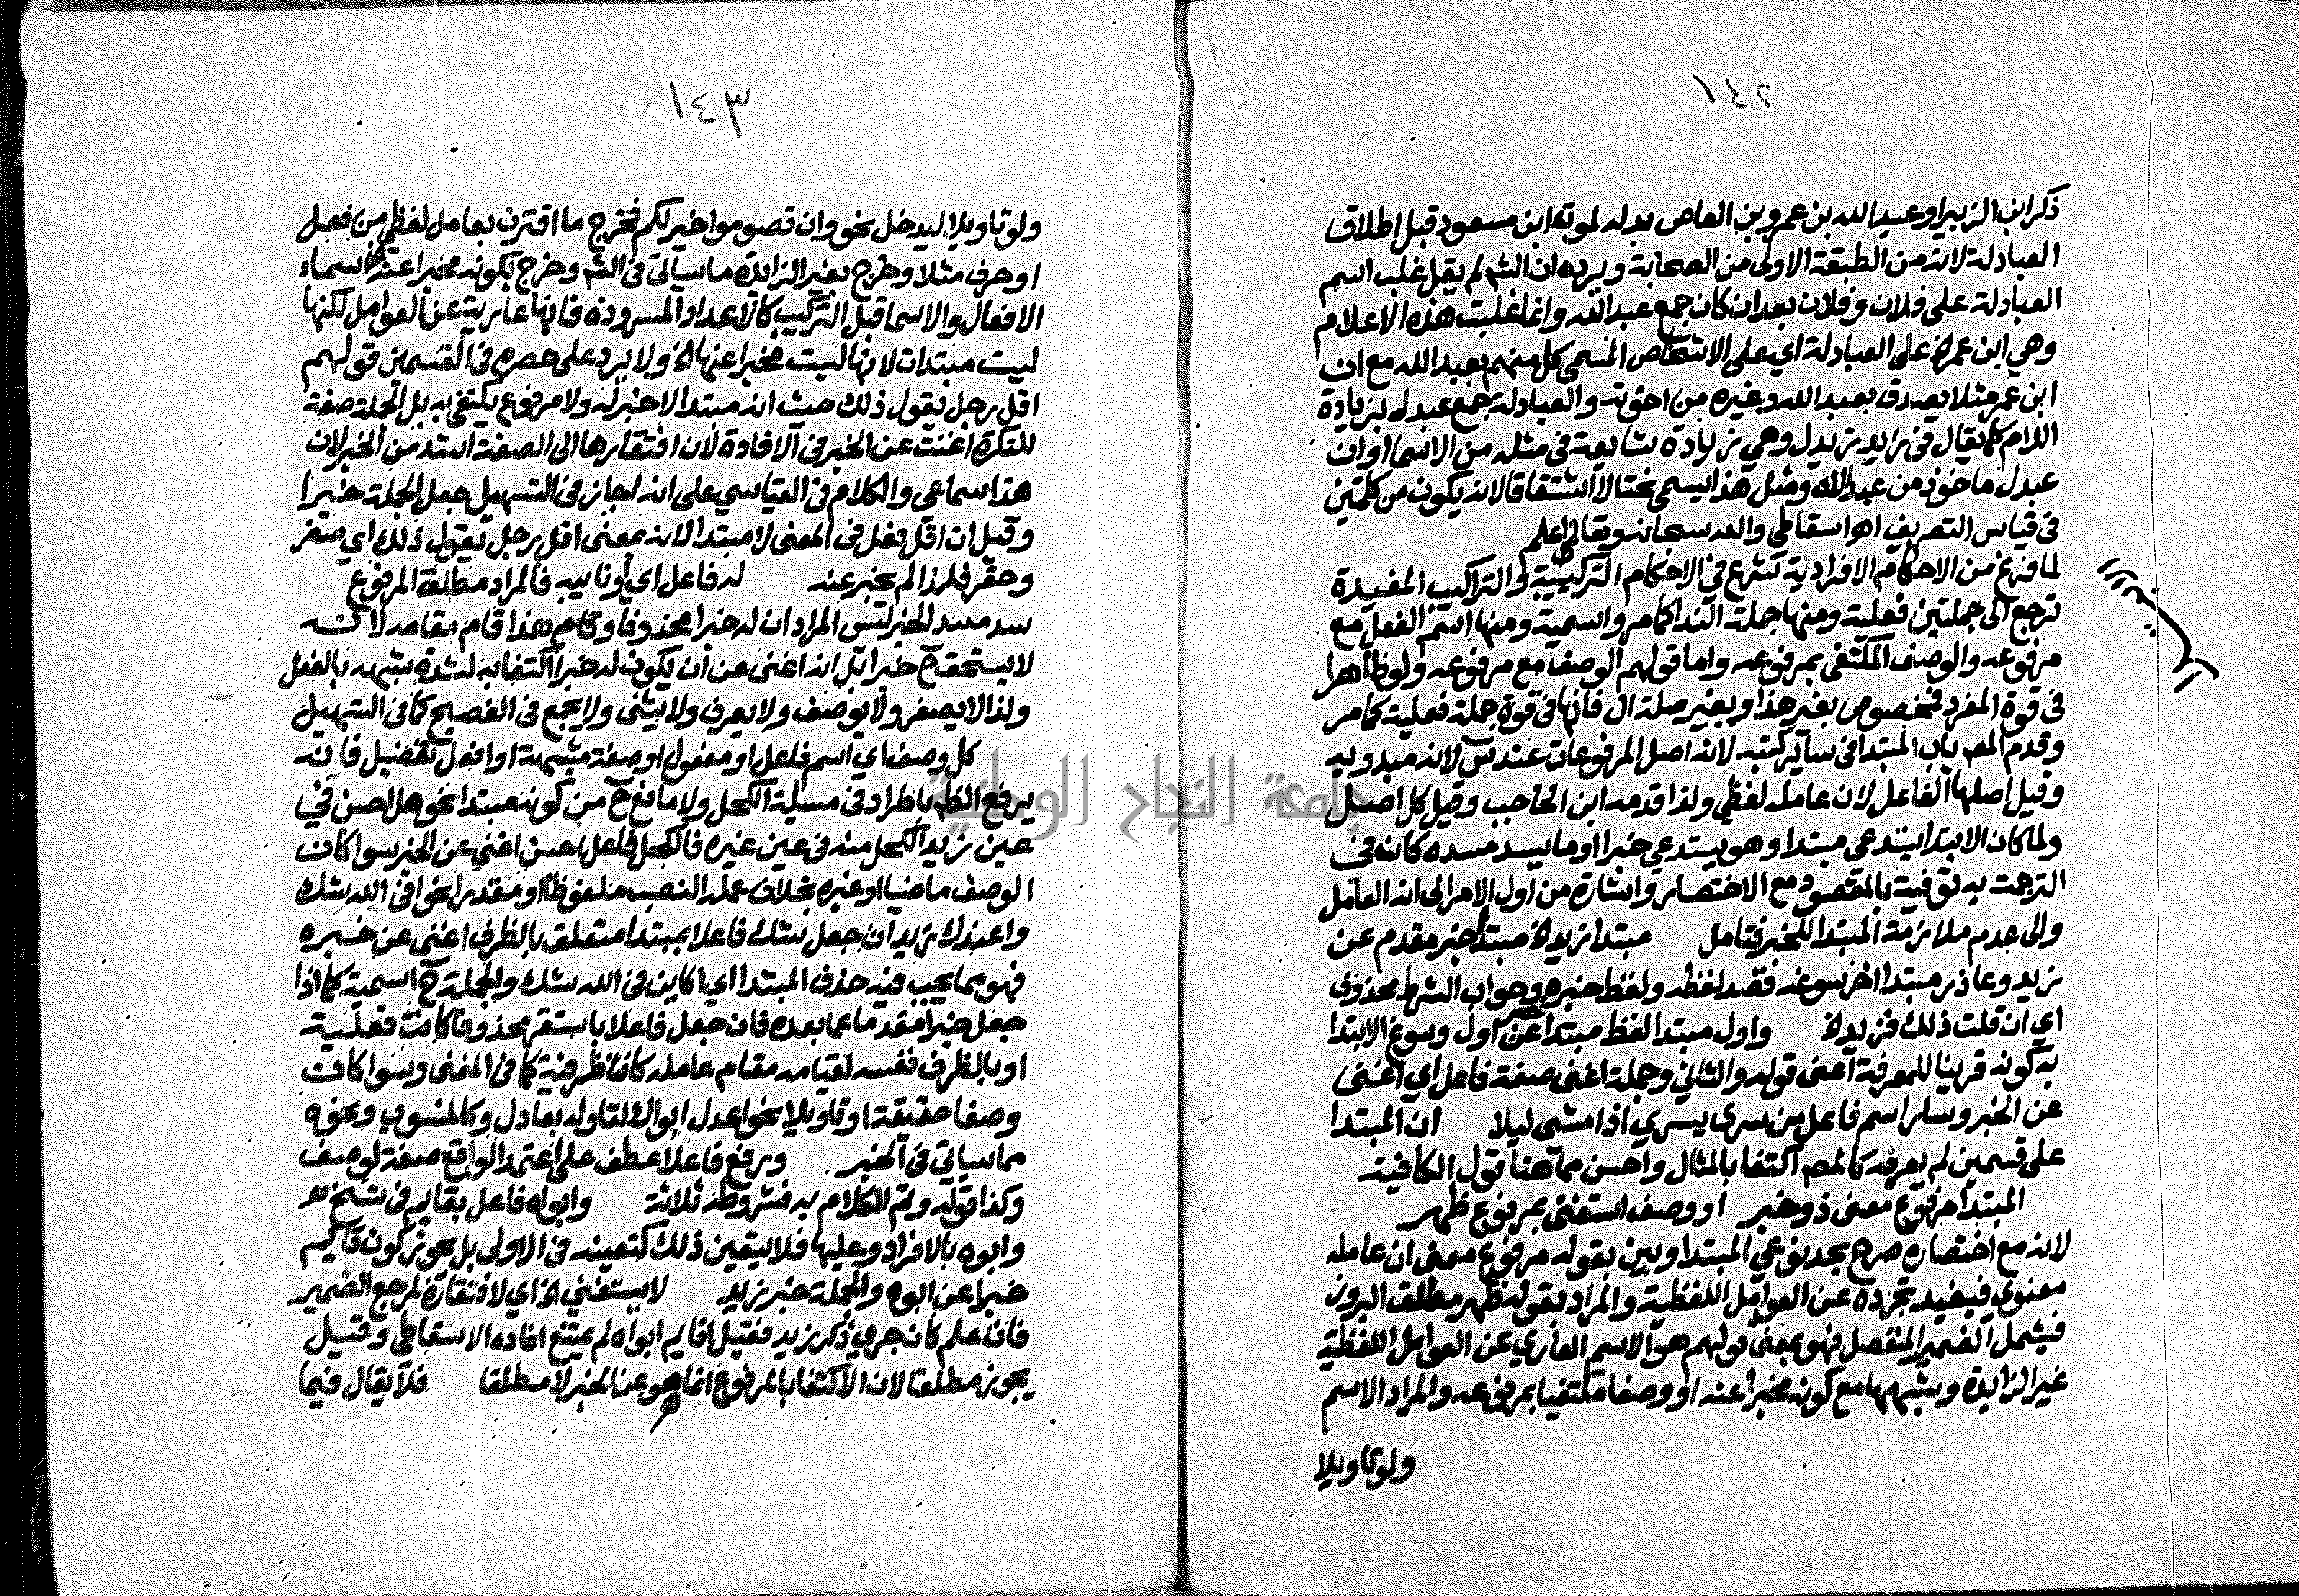 ١٤٢
ذكر ابن الزبير او عبد الله بن عمرو بن العاص بدله لموته ابن مسعود قبل اطلاق
العبادلة لانه من الطبقة الاولى من الصحابة ويرده ان الش لم يقل غلب اسم
العبادلة على فلان وفلان بعد ان كان جمع عبد الله وانما غلبت هذه الاعلام
وهي ابن عمر الخ على العبادلة اي على الاشخاص المسمى كل منهم بعبد الله مع ان
ابن عمر مثلا يصدق بعبد الله وغيره من اخوته والعبادلة جمع عبدل بزيادة
اللام كما يقال في زيد زيدل وهي زيادة شايعة في مثله من الاسما او ان
عبدل ماخوذ من عبد الله ومثل هذا يسمى نحتا لا اشتقاقا لانه يكون من كلمتين
في قياس التصريف اه اسقاطي والله سبحانه وتعالى اعلم
لما فرغ من الاحكام الافرادية شرع في الاحكام التركيبية والتراكيب المفيدة
ترجع الى جملتين فعلية ومنها جملة الندا كما مر واسمية ومنها اسم الفعل مع
مرفوعه والوصف المكتفى بمرفوعه واما قولهم الوصف مع مرفوعه ولو ظاهرا
في قوة المفرد فمخصوص بغير هذا وبغير صلة ال فانها في قوة جملة فعلية كما مر
وقدم المص باب المبتدا في سائر كتبه لانه اصل المرفوعات عند س لانه مبدو به
وقيل اصلها الفاعل لان عامله لفظي ولذا قدمه ابن الحاجب وقيل كل اصل
ولما كان الابتدا يستدعي مبتدا وهو يستدعي خبرا او ما يسد مسده كانه في
الترجمة به توفية بالمقصود مع الاختصار واشارة من اول الامر الى انه العامل
والى عدم ملازمة المبتدا للخبر فتامل مبتدا زيد الخ مبتدا خبر مقدم عن
زيد وعاذر مبتدا اخر سوغه قصد لفظه ولفظ خبره وجواب الشرط محذوف
اي ان قلت ذلك فزيد الخ واول مبتدا لفظ مبتدا عن اول وسوغ الابتدا
به كونه قرينا للمعرفة اعنى قوله والثاني وجملة اغنى صفة فاعل اي اغنى
عن الخبر وسار اسم فاعل من سرى يسري اذا مشى ليلا ان المبتدا
على قسمين لم يعرفه كالمص اكتفا بالمثال واحسن مما هنا قول الكافية
المبتدا مرفوع معنى ذو خبر او وصف استغنى بمرفوع ظهر
لانه مع اختصاره صرح بحد نوعي المبتدا وبين بقوله مرفوع معنى ان عامله
معنوي فيفيد تجرده عن العوامل اللفظية والمراد بقوله ظهر مطلق البروز
فيشمل الضمير المنفصل فهو بمعنى قولهم هو الاسم العاري عن العوامل اللفظية
غير الزايدة وشبهها مع كونه مخبرا عنه او وصفا مكتفيا بمرفوعه والمراد الاسم
ولو تاويلا
١٤٣
ولو تاويلا ليدخل نحو وان تصوموا خير لكم فخرج ما اقترن بعامل لفظي من فعل
او حرف مثلا وخرج بغير الزايدة ما سيأتي في الش وخرج بكونه مخبرا عنه الخ اسماء
الافعال والاسما قبل التركيب كالاعداد المسرودة فانها عارية عن العوامل لكنها
ليست مبتدات لانها ليست مخبرا عنها الخ ولا يرد على حصره في القسمين قولهم
اقل رجل يقول ذلك حيث انه مبتدا لا خبر له ولا مرفوع يكتفى به بل الجملة صفة
للنكرة اغنت عن الخبر في الافادة لان افتقارها الى الصفة اشد من الخبر لان
هذا سماعي والكلام في القياسي على انه اجاز في التسهيل جعل الجملة خبرا
وقيل ان اقل فعل في المعنى لا مبتدا لانه بمعنى اقل رجل يقول ذلك اي صغر
وحقر فلذا لم يخبر عنه له فاعل اي او نائبه فالمراد مطلق المرفوع
سد مسد الخبر ليس المراد ان له خبرا محذوفا وقام هذا قام مقامه لانه
لا يستحق ح خبرا بل انه اغنى عن ان يكون له خبرا اكتفا به لشدة شبهه بالفعل
ولذا لا يصغر ولا يوصف ولا يعرف ولا يثنى ولا يجمع في الفصيح كما في التسهيل
كل وصف اي اسم فاعل او مفعول او صفة مشبهة او افعل تفضيل فانه
يرفع الظ باطراد في مسيلة الكحل ولا مانع ح من كونه مبتدا نحو هل احسن في
عين زيد الكحل منه في عين غيره فالكحل فاعل احسن اغنى عن الخبر سوا كان
الوصف ماضيا او غيره بخلاف عمله النصب ملفوظا او مقدرا نحو افي الله شك
واعندك زيد ان جعل شك فاعلا بمبتدا متعلق بالظرف اغنى عن خبره
فهو مما يجب فيه حذف المبتدا اي اكاين في الله شك والجملة ح اسمية كما اذا
جعل خبرا مقدما عما بعده فان جعل فاعلا باستقر محذوفا كانت فعلية
او بالظرف نفسه لقيامه مقام عامله كانت ظرفية كما في المغنى وسوا كان
وصفا حقيقة او تاويلا نحو اعدل ابواك لتاوله بعادل وكالمنسوب ونحوه
مما سياتي في الخبر ورفع فاعلا عطف على اعتمد الواقع صفة لوصف
وكذا قوله وتم الكلام به فشروطه ثلاثة وابواه فاعل بقايم في نسخ
وابوه بالافراد وعليها فلا يتعين ذلك كتعينه في الاولى بل يجوز كون قائم
خبرا عن ابوه والجملة خبر زيد لا يستغني الخ اي لافتقاره لمرجع الضمير
فان علم كان جرى ذكر زيد فقيل اقايم ابواه لم يمتنع افاده الاسقاطي وقيل
يجوز مطلقا لان الاكتفا بالمرفوع انما هو عن الخبر لا مطلقا فلا يقال فيما
جامعة النجاح الوطنية